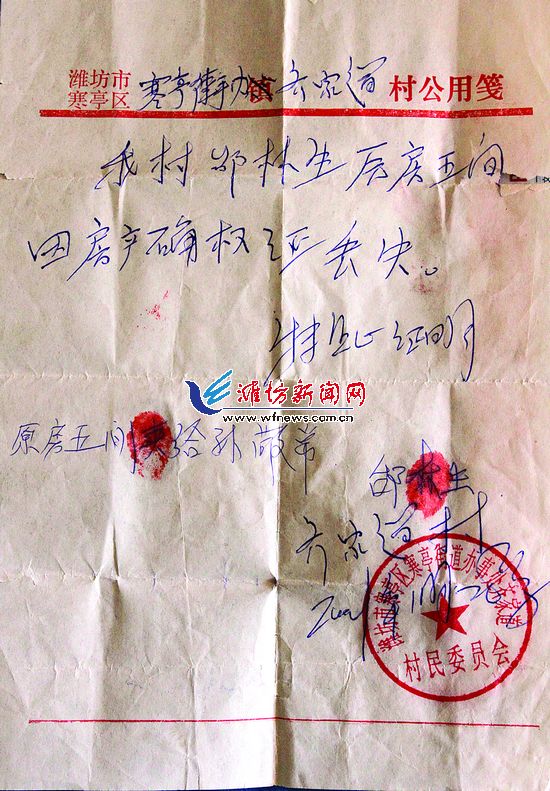 潍坊市
寒亭区 寒亭街办 镇 齐家道 村公用笺
我村邰林生原房五间
因房产确权证丢失。
特此证明
潍坊新闻网
www.wfnews.com.cn
原房五间卖给孙
邰林生
齐家道村
潍坊市寒亭区寒亭街道办事处齐家道
村民委员会